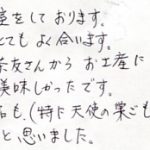 室をしております。
とても よく合います。
茶友さんから お土産に
美味しかったです。
も、(特に 天使の巣ごも
と、思いました。